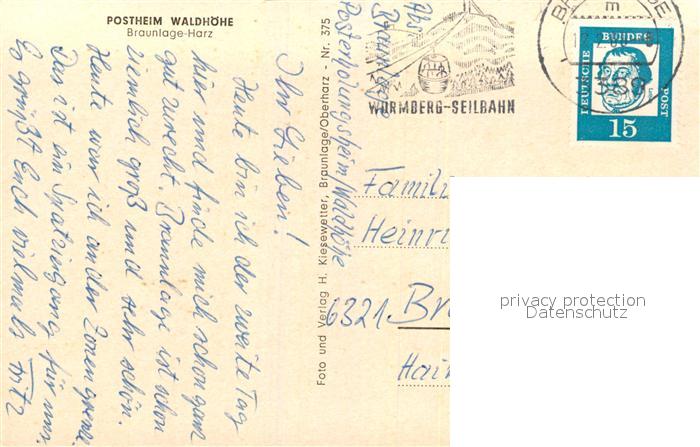 POSTHEIM WALDHÖHE
Braunlage-Harz
Ihr Lieben!
Heute bin ich der zweite Tag
hier und finde mich schon ganz
gut zurecht. Braunlage ist schon
ziemlich groß und sehr schön.
Heute war ich an der Zonengrenze.
Das ist ein Spaziergang für uns.
Es grüßt Euch vielmals Fritz
Foto und Verlag H. Kiesewetter, Braunlage/Oberharz - Nr. 375
Abs.
Braunlage
Posterholungsheim Waldhöhe
WURMBERG-SEILBAHN
DEUTSCHE
BUNDES
POST
15
Famili
Heinri
6321 Br
Hai
privacy protection
Datenschutz